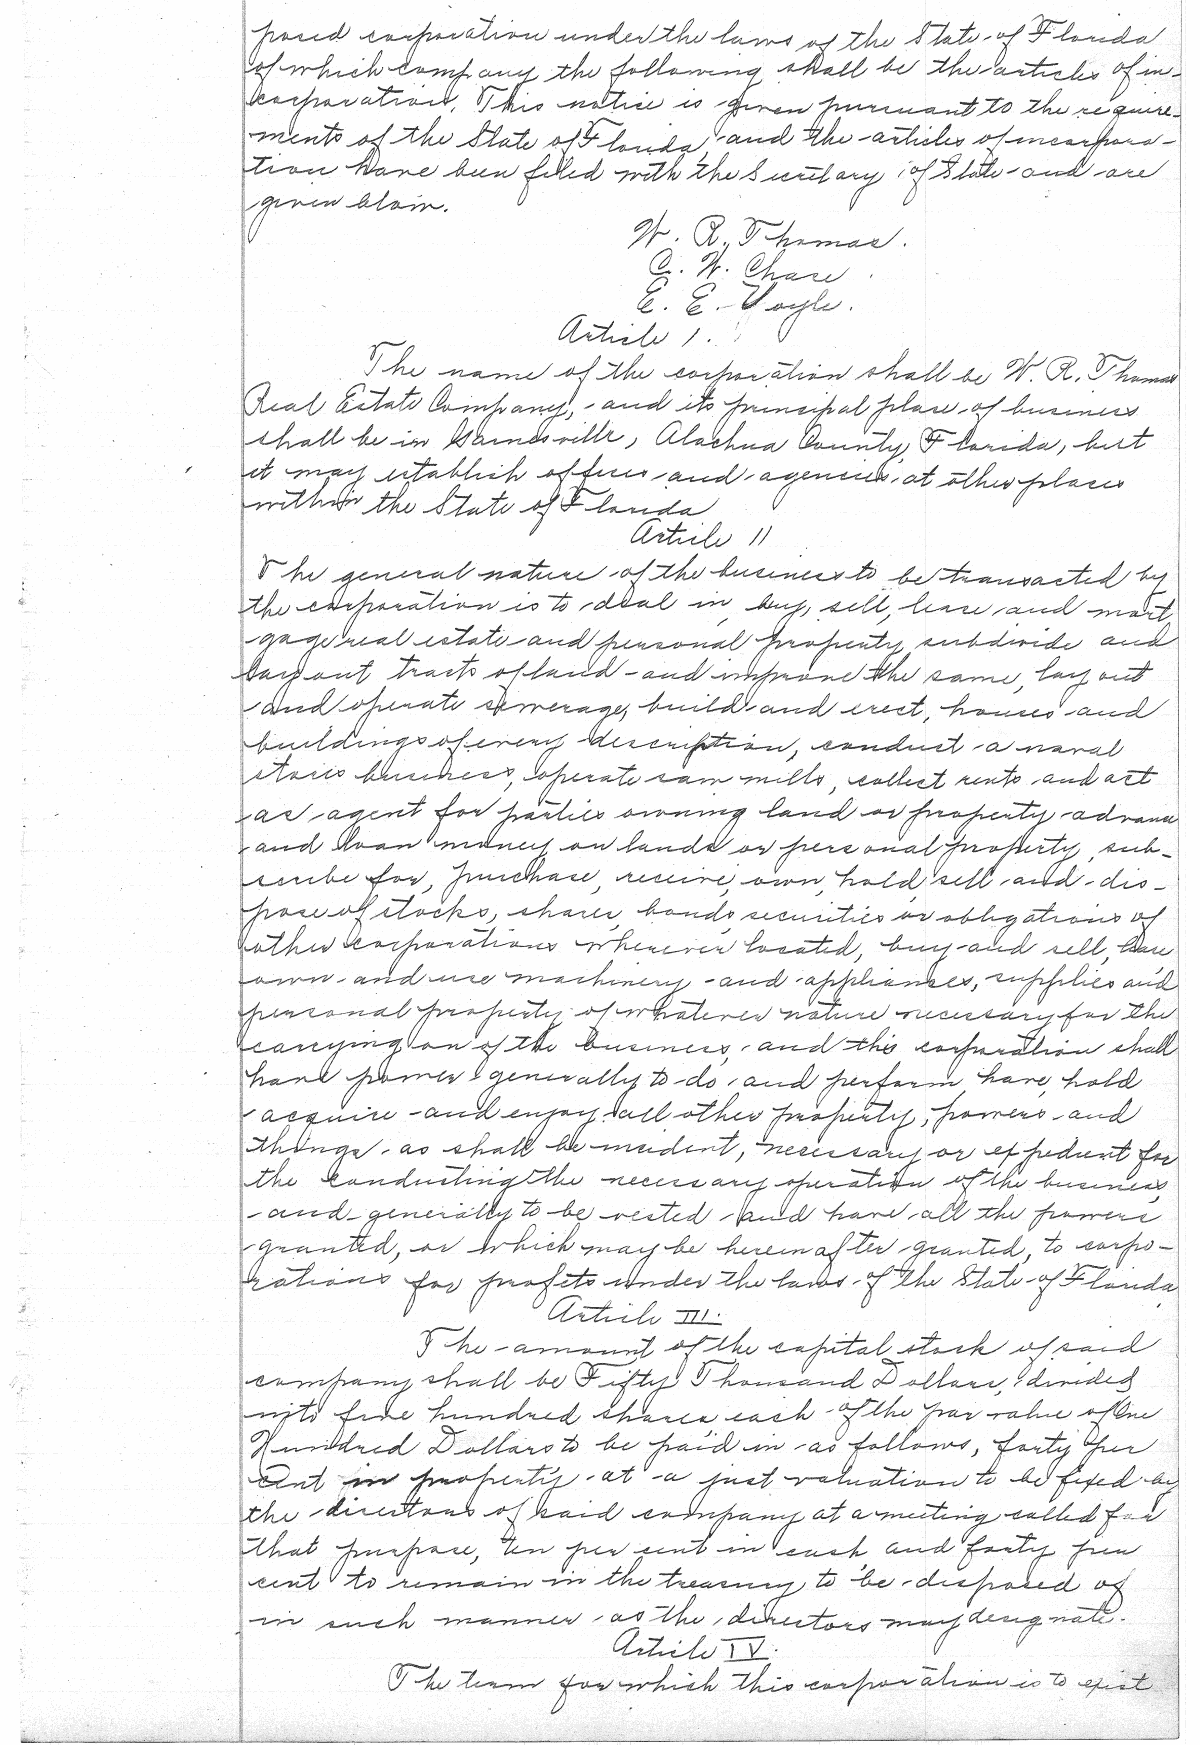 posed corporation under the laws of the State of Florida
of which company the following shall be the articles of in-
corporation. This notice is given pursuant to the require-
ments of the State of Florida, and the articles of incorpora-
tion have been filed with the Secretary of State and are
given below.
W. R. Thomas.
C. W. Chase.
E. E. Voyle.
Article I.
The name of the corporation shall be W. R. Thomas
Real Estate Company, and its principal place of business
shall be in Gainesville, Alachua County, Florida, but
it may establish offices and agencies at other places
within the State of Florida
Article II
The general nature of the business to be transacted by
the corporation is to deal in, buy, sell, lease and mort
gage real estate and personal property, subdivide and
lay out tracts of land and improve the same, lay out
and operate sewerage, build and erect, houses and
buildings of every description, conduct a naval
stores business, operate saw mills, collect rents and act
as agent for parties owning land or property advance
and loan money on lands or personal property, sub-
scribe for, purchase, receive, own, hold, sell and dis-
pose of stocks, shares, bonds, securities or obligations of
other corporations wherever located, buy and sell, lease
own and use machinery and appliances, supplies and
personal property of whatever nature necessary for the
carrying on of the business, and this corporation shall
have power generally to do and perform, have, hold
acquire and enjoy all other property, powers and
things as shall be incident, necessary or expedient for
the conducting the necessary operation of the business,
and generally to be vested and have all the powers
granted, or which may be hereinafter granted, to corpo-
rations for profits under the laws of the State of Florida
Article III.
The amount of the capital stock of said
company shall be Fifty Thousand Dollars, divided
into five hundred shares each of the par value of One
Hundred Dollars to be paid in as follows, forty per
cent in property at a just valuation to be fixed by
the directors of said company at a meeting called for
that purpose, ten per cent in cash, and forty per
cent to remain in the treasury to be disposed of
in such manner as the directors may designate.
Article IV.
The term for which this corporation is to exist